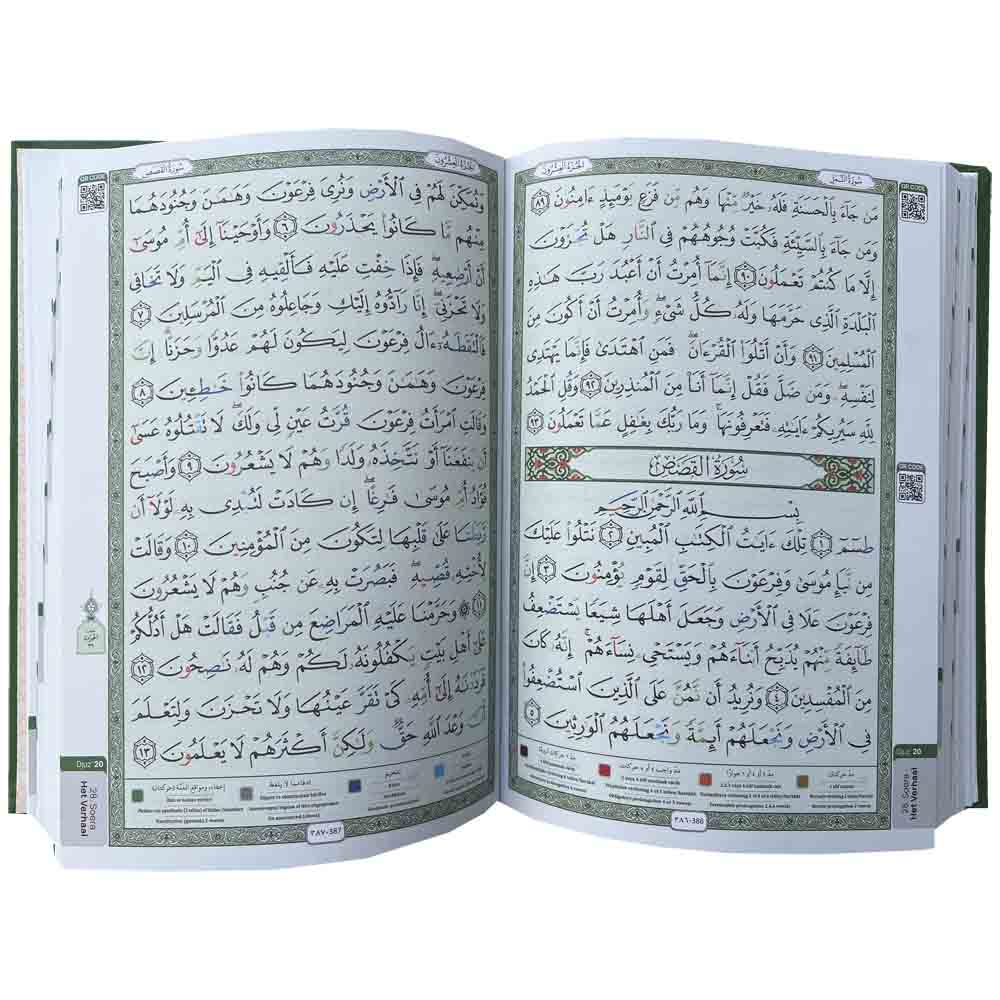 سُورَةُ النَّمْلِ
الجُزْءُ العِشْرُونَ
QR CODE
مَن جَآءَ بِٱلْحَسَنَةِ فَلَهُۥ خَيْرٌ مِّنْهَا وَهُم مِّن فَزَعٍ يَوْمَئِذٍ ءَامِنُونَ ٨٩
وَمَن جَآءَ بِٱلسَّيِّئَةِ فَكُبَّتْ وُجُوهُهُمْ فِى ٱلنَّارِ هَلْ تُجْزَوْنَ
إِلَّا مَا كُنتُمْ تَعْمَلُونَ ٩٠ إِنَّمَآ أُمِرْتُ أَنْ أَعْبُدَ رَبَّ هَٰذِهِ
ٱلْبَلْدَةِ ٱلَّذِى حَرَّمَهَا وَلَهُۥ كُلُّ شَىْءٍ وَأُمِرْتُ أَنْ أَكُونَ مِنَ
ٱلْمُسْلِمِينَ ٩١ وَأَنْ أَتْلُوَا۟ ٱلْقُرْءَانَ فَمَنِ ٱهْتَدَىٰ فَإِنَّمَا يَهْتَدِى
لِنَفْسِهِۦ وَمَن ضَلَّ فَقُلْ إِنَّمَآ أَنَا۠ مِنَ ٱلْمُنذِرِينَ ٩٢ وَقُلِ ٱلْحَمْدُ
لِلَّهِ سَيُرِيكُمْ ءَايَٰتِهِۦ فَتَعْرِفُونَهَا وَمَا رَبُّكَ بِغَٰفِلٍ عَمَّا تَعْمَلُونَ ٩٣
سُورَةُ القَصَصِ
QR CODE
بِسْمِ ٱللَّهِ ٱلرَّحْمَٰنِ ٱلرَّحِيمِ
طسٓمٓ ١ تِلْكَ ءَايَٰتُ ٱلْكِتَٰبِ ٱلْمُبِينِ ٢ نَتْلُوا۟ عَلَيْكَ
مِن نَّبَإِ مُوسَىٰ وَفِرْعَوْنَ بِٱلْحَقِّ لِقَوْمٍ يُؤْمِنُونَ ٣ إِنَّ
فِرْعَوْنَ عَلَا فِى ٱلْأَرْضِ وَجَعَلَ أَهْلَهَا شِيَعًا يَسْتَضْعِفُ
طَآئِفَةً مِّنْهُمْ يُذَبِّحُ أَبْنَآءَهُمْ وَيَسْتَحْىِۦ نِسَآءَهُمْ إِنَّهُۥ كَانَ
مِنَ ٱلْمُفْسِدِينَ ٤ وَنُرِيدُ أَن نَّمُنَّ عَلَى ٱلَّذِينَ ٱسْتُضْعِفُوا۟
فِى ٱلْأَرْضِ وَنَجْعَلَهُمْ أَئِمَّةً وَنَجْعَلَهُمُ ٱلْوَٰرِثِينَ ٥
Djuz' 20
28. Soera
Het Verhaal
٣٨٦-386
الجُزْءُ العِشْرُونَ
سُورَةُ القَصَصِ
QR CODE
وَنُمَكِّنَ لَهُمْ فِى ٱلْأَرْضِ وَنُرِىَ فِرْعَوْنَ وَهَٰمَٰنَ وَجُنُودَهُمَا
مِنْهُم مَّا كَانُوا۟ يَحْذَرُونَ ٦ وَأَوْحَيْنَآ إِلَىٰٓ أُمِّ مُوسَىٰٓ
أَنْ أَرْضِعِيهِ فَإِذَا خِفْتِ عَلَيْهِ فَأَلْقِيهِ فِى ٱلْيَمِّ وَلَا تَخَافِى
وَلَا تَحْزَنِىٓ إِنَّا رَآدُّوهُ إِلَيْكِ وَجَاعِلُوهُ مِنَ ٱلْمُرْسَلِينَ ٧
فَٱلْتَقَطَهُۥٓ ءَالُ فِرْعَوْنَ لِيَكُونَ لَهُمْ عَدُوًّا وَحَزَنًا إِنَّ
فِرْعَوْنَ وَهَٰمَٰنَ وَجُنُودَهُمَا كَانُوا۟ خَٰطِـِٔينَ ٨
وَقَالَتِ ٱمْرَأَتُ فِرْعَوْنَ قُرَّتُ عَيْنٍ لِّى وَلَكَ لَا تَقْتُلُوهُ عَسَىٰٓ
أَن يَنفَعَنَآ أَوْ نَتَّخِذَهُۥ وَلَدًا وَهُمْ لَا يَشْعُرُونَ ٩ وَأَصْبَحَ
فُؤَادُ أُمِّ مُوسَىٰ فَٰرِغًا إِن كَادَتْ لَتُبْدِى بِهِۦ لَوْلَآ أَن
رَّبَطْنَا عَلَىٰ قَلْبِهَا لِتَكُونَ مِنَ ٱلْمُؤْمِنِينَ ١٠ وَقَالَتْ
لِأُخْتِهِۦ قُصِّيهِ فَبَصُرَتْ بِهِۦ عَن جُنُبٍ وَهُمْ لَا يَشْعُرُونَ
١١ ۞ وَحَرَّمْنَا عَلَيْهِ ٱلْمَرَاضِعَ مِن قَبْلُ فَقَالَتْ هَلْ أَدُلُّكُمْ
عَلَىٰٓ أَهْلِ بَيْتٍ يَكْفُلُونَهُۥ لَكُمْ وَهُمْ لَهُۥ نَٰصِحُونَ ١٢
فَرَدَدْنَٰهُ إِلَىٰٓ أُمِّهِۦ كَىْ تَقَرَّ عَيْنُهَا وَلَا تَحْزَنَ وَلِتَعْلَمَ
أَنَّ وَعْدَ ٱللَّهِ حَقٌّ وَلَٰكِنَّ أَكْثَرَهُمْ لَا يَعْلَمُونَ ١٣
Djuz' 20
28. Soera
Het Verhaal
٣٨٧-387